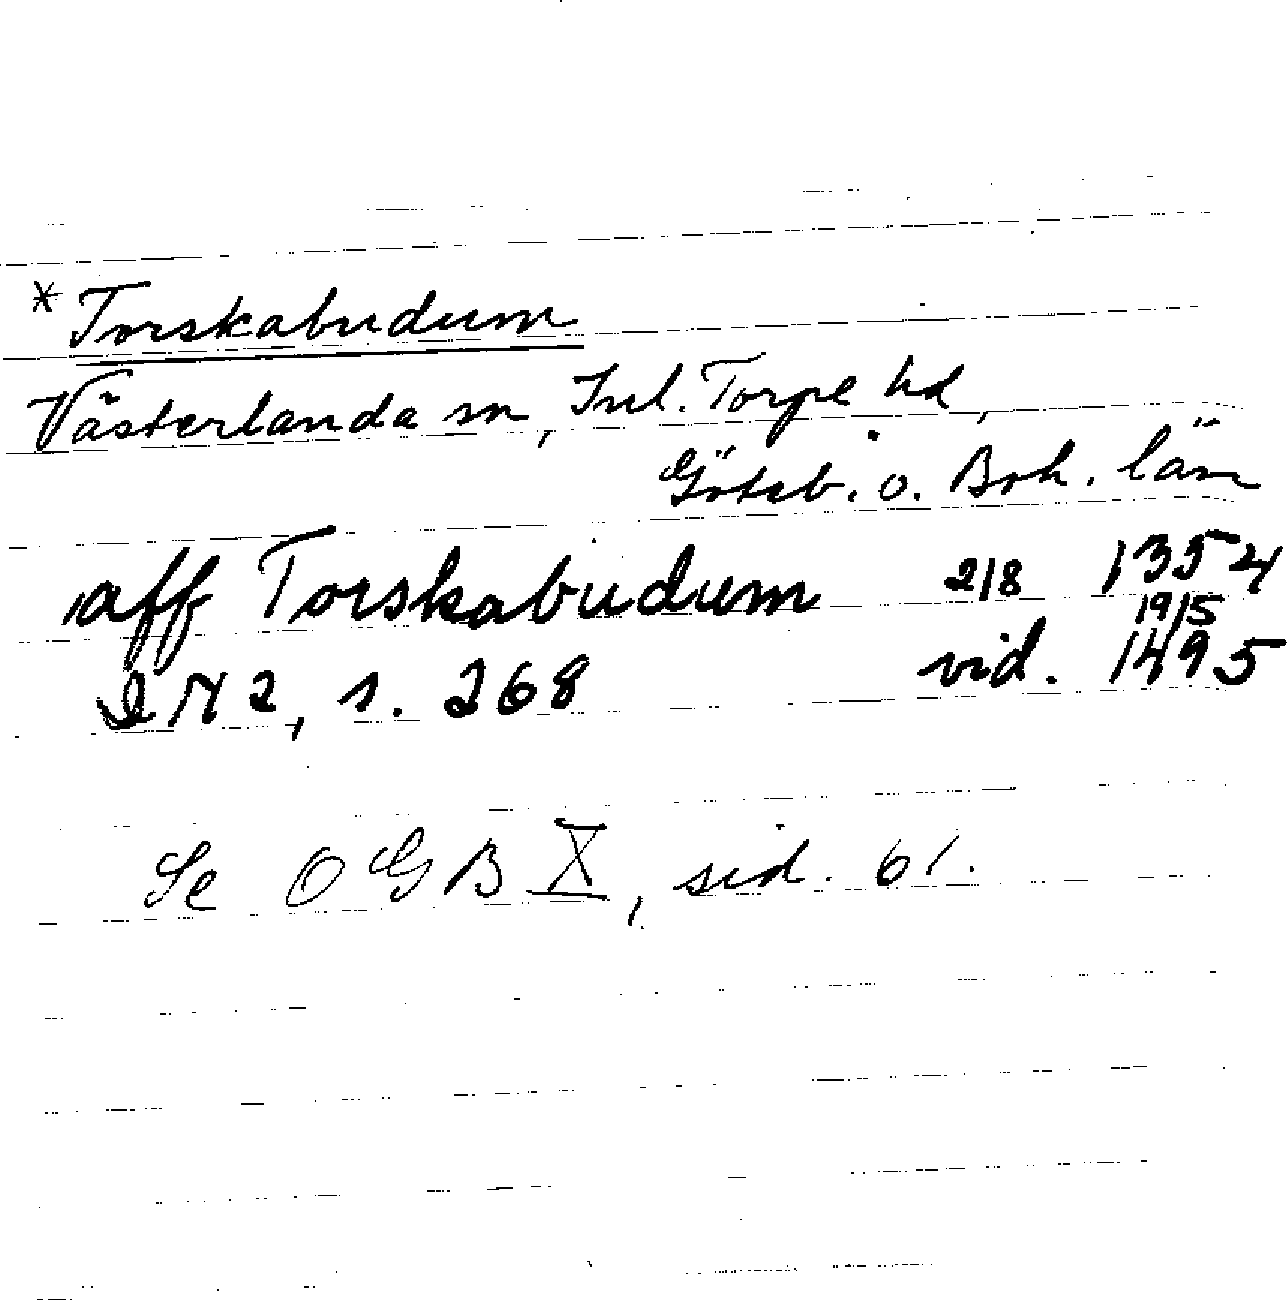 *Torskabudum
Västerlanda sn, Inl. Torpe hd,
Göteb. o. Boh. län
aff Torskabudum 2/8 1354
19/5
DN 2, s. 268 vid. 1495
Se OGB X, sid. 61.